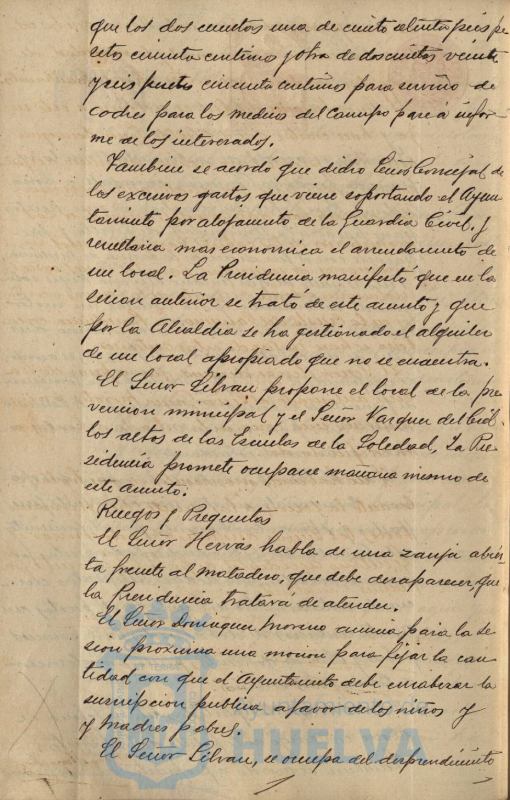 que los dos cuentas una de ciento setenta y seis pe
setas cincuenta centimos y otra de doscientos veinte
y seis pesetas cincuenta centimos para servicio de
coches para los medicos del campo pase á infor-
me de los interesados.
Tambien se acordó que dicho Señor Concejal de
los excesivos gastos que viene soportando el Ayun-
tamiento por alojamiento de la Guardia Civil, y
resultaria mas economica el arrendamiento de
un local. La Presidencia manifestó que en la
sesion anterior se trató de este asunto y que
por la Alcaldia se ha gestionado el alquiler
de un local apropiado que no se encuentra.
El Señor Lilvan propone el local de la pre
vencion municipal y el Señor Vazquez del
los altos de las Escuelas de la Soledad, La Pre-
sidencia promete ocuparse mañana mismo de
este asunto.
Ruegos y Preguntas
El Señor Hervás habla de una zanja abier-
ta frente al matadero, que debe desaparecer, que
la Presidencia tratara de atender.
El Señor Dominguez Moreno anuncia para la se
sion próxima una mocion para fijar la can-
tidad con que el Ayuntamiento debe encabezar la
suscripcion publica a favor de los niños y
y madres pobres.
El Señor Lilvan, se ocupa del desprendimiento
HUELVA